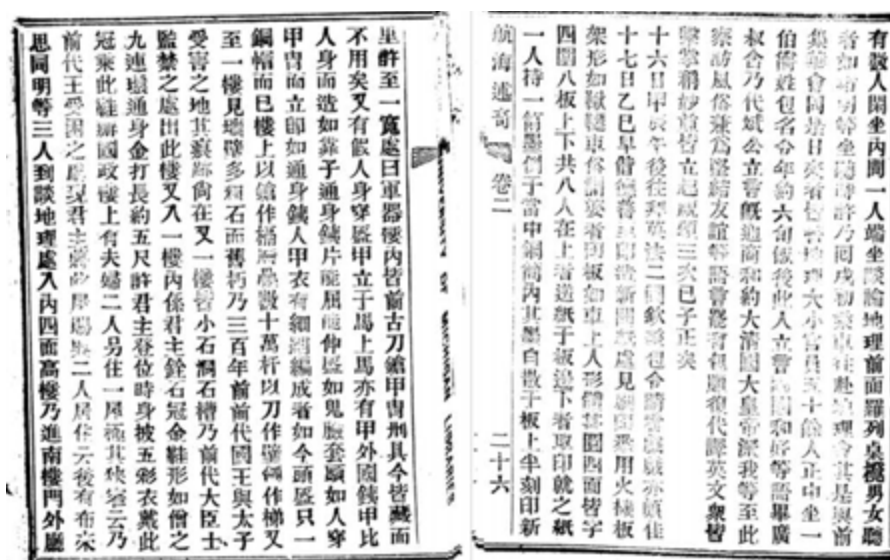 有數人閒坐內間一人端坐談論地理前面羅列桌櫈男女聽
者如堵明等坐聽時許乃回戌初乘車往赴地理會其是與前
集茶會同是日來者皆善地理大小官員五十餘人正中坐一
伯爵姓包名令年約六旬飯後此人立言兩國和好等語畢廣
叔含乃代斌公立言慨通商和約大清國大皇帝派我等至此
察訪風俗兼為路結友誼等語言罷有包臘復代譯英文眾皆
擊掌稱妙旋皆立起咸頌三次已子正矣
十六日甲辰午後往拜英法二國欽差包令
十七日乙巳早偕德善至印造新聞紙處見編印悉用火機板
架形如鞦韆車俗謂耍者印板如車上人形體甚圓四面皆字
四圍八板上下共八人在上者送紙于板邊下者取印就之紙
一人持一筒墨倒于當中銅筒內其墨自散于板上半刻印新
航海述奇 卷二 二十六
里許至一寬處曰軍器樓內皆前古刀鎗甲冑刑具今皆藏而
不用矣又有假人身穿盔甲立于馬上馬亦有甲外國錢甲比
人身而造如靠子通身錢片能屈能伸盔如鬼臉套頭如人穿
甲冑而立卽如通身錢人甲衣有細鐵編成者如今頭盔只一
銅帽而已樓上以鎗作牆壁疊數十萬杆以刀作欄杆作梯又
至一樓見牆壁多糊石而舊朽乃三百年前前代國王與太子
受害之地其痕跡尚在又一樓皆小石洞石槽乃前代大臣士
監禁之處出此樓又入一樓內係君主鈴石冠金鞋形如僧之
九連環通身金打長約五尺許君主登位時身披五彩衣戴此
冠乘此鞋辦國政樓上有夫婦二人另住一屋極其狹窄云乃
前代王受困之處現君主將此屋賜與二人居住云後有布來
思同明等三人到談地理處入內四面高樓乃進南樓門外廳